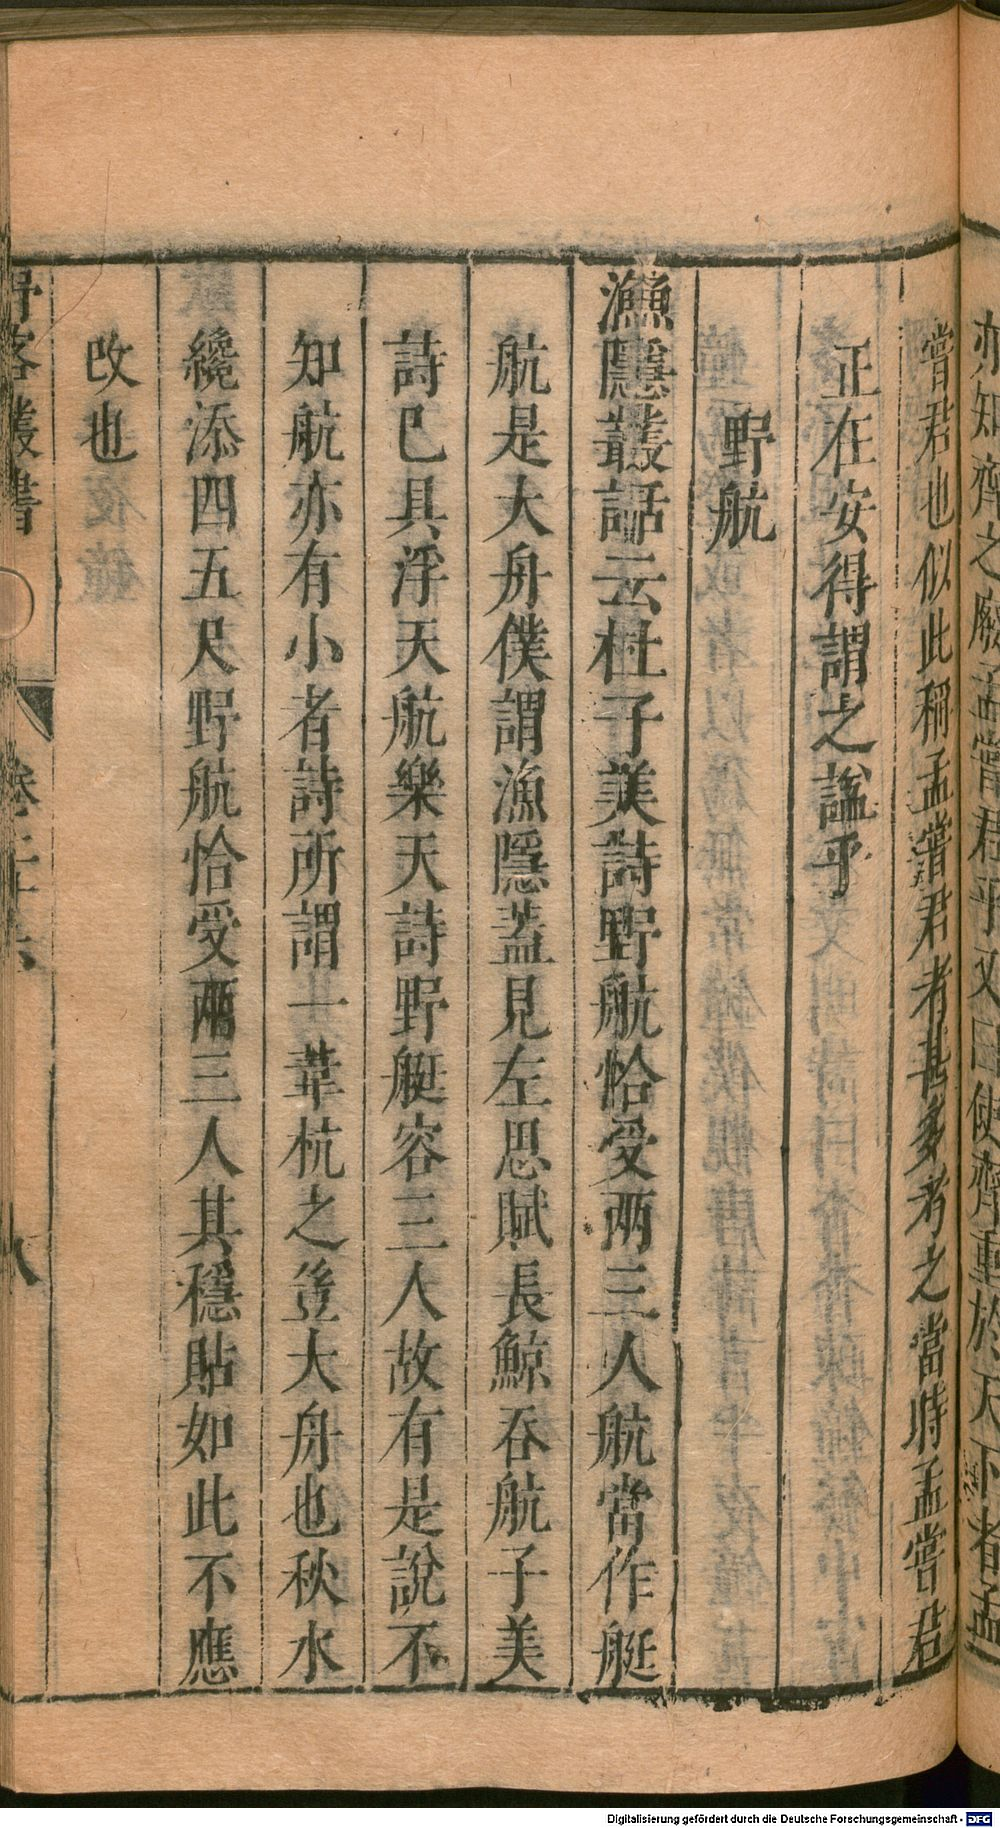 亦知齊之廢孟嘗君乎又曰使齊重於天下者孟
嘗君也似此稱孟嘗君者甚多考之當時孟嘗君
正在安得謂之謚乎
野航
漁隱叢話云杜子美詩野航恰受兩三人航當作艇
航是大舟僕謂漁隱蓋見左思賦長鯨吞航子美
詩已具浮天航樂天詩野艇容三人故有是說不
知航亦有小者詩所謂一葦杭之豈大舟也秋水
纔添四五尺野航恰受兩三人其穩貼如此不應
改也
野客叢書 卷二十六 八
Digitalisierung gefördert durch die Deutsche Forschungsgemeinschaft - DFG